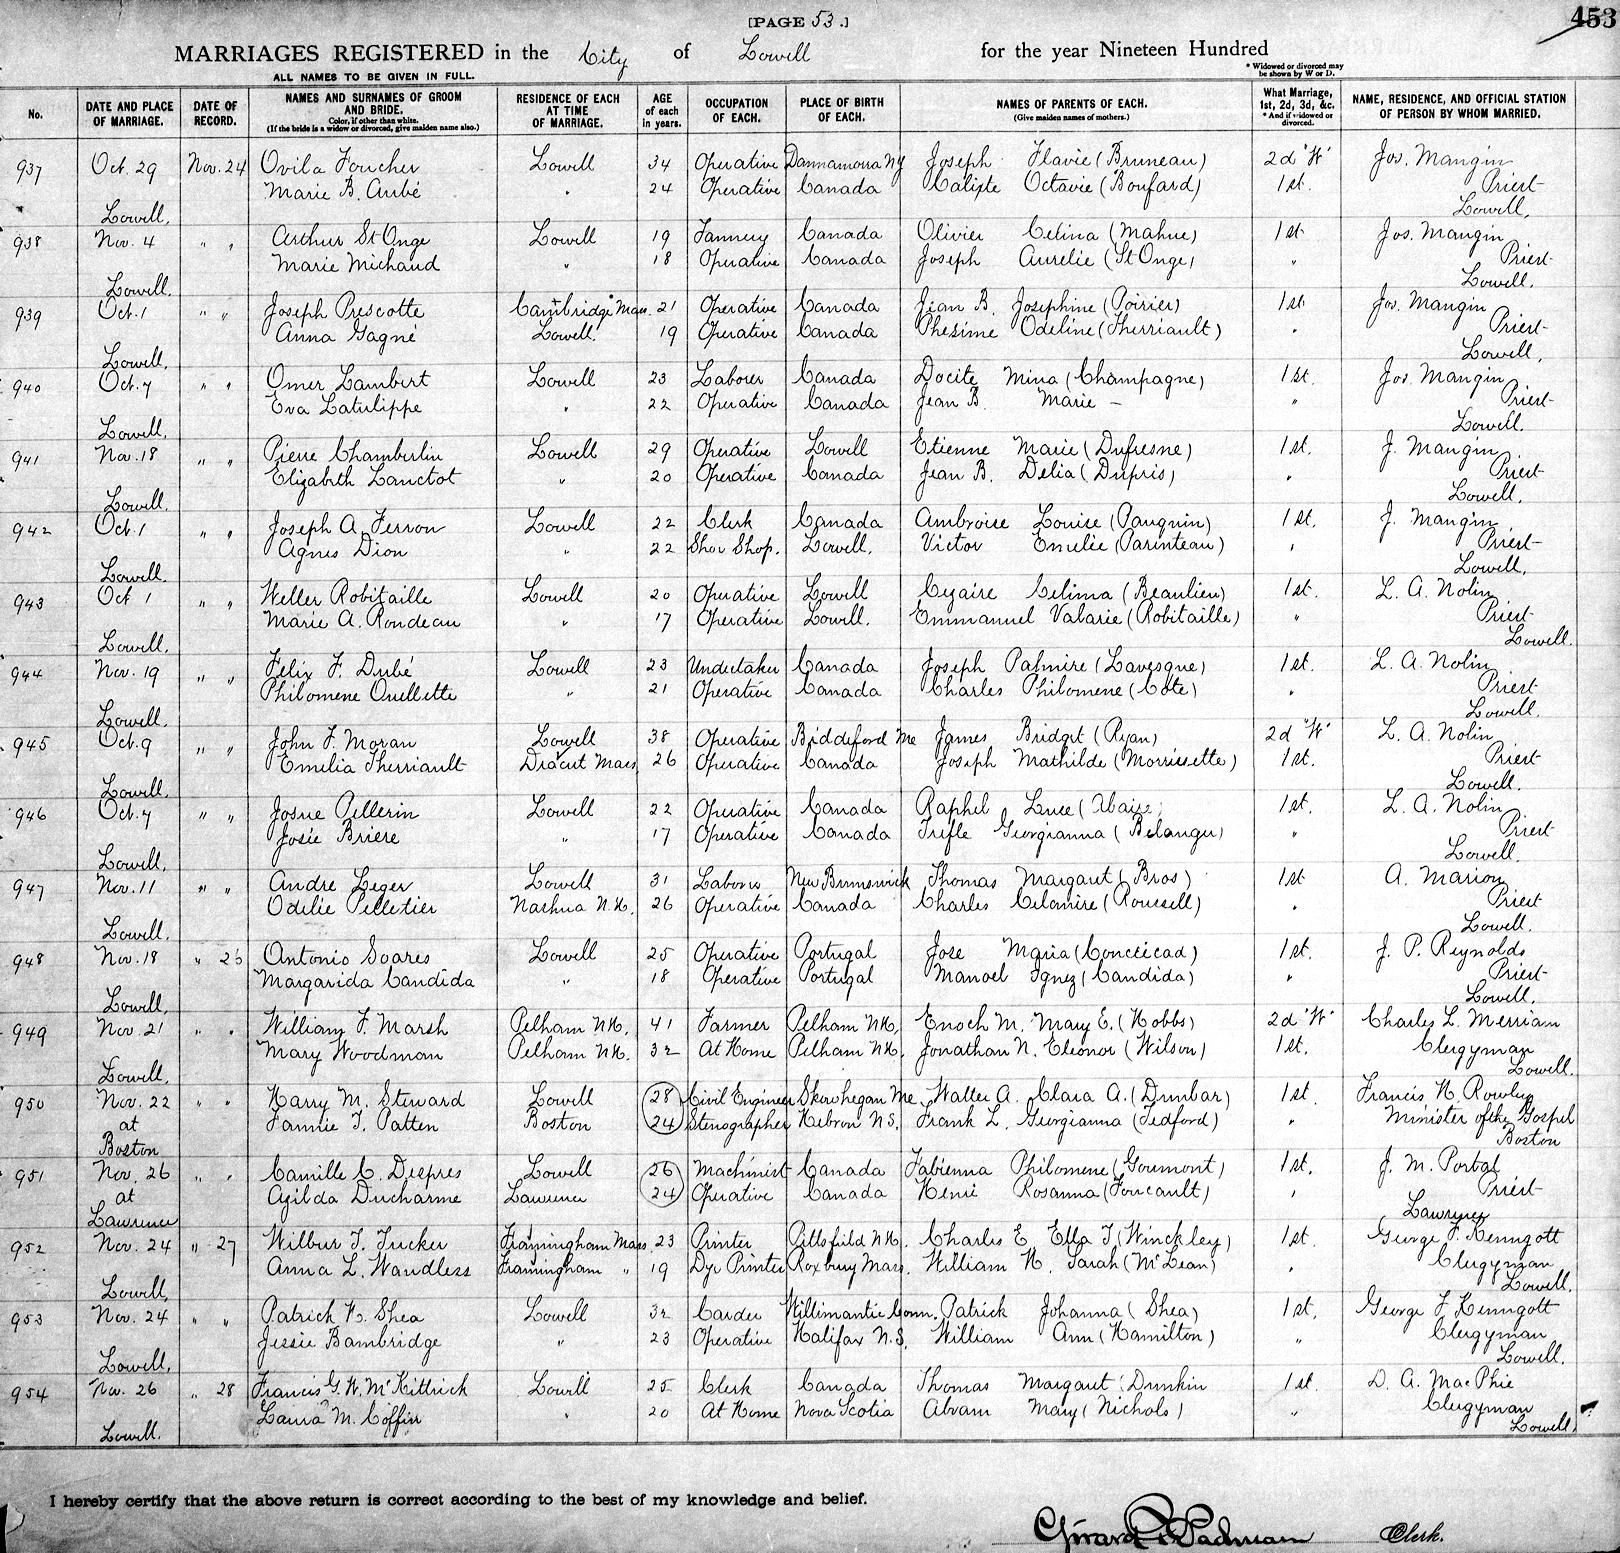 [PAGE 53.]
453
MARRIAGES REGISTERED in the City of Lowell for the year Nineteen Hundred
ALL NAMES TO BE GIVEN IN FULL.
* Widowed or divorced may be shown by W or D.
No. DATE AND PLACE OF MARRIAGE. DATE OF RECORD. NAMES AND SURNAMES OF GROOM AND BRIDE. Color, if other than white. (If the bride is a widow or divorced, give maiden name also.) RESIDENCE OF EACH AT TIME OF MARRIAGE. AGE of each in years. OCCUPATION OF EACH. PLACE OF BIRTH OF EACH. NAMES OF PARENTS OF EACH. (Give maiden names of mothers.) What Marriage, 1st, 2d, 3d, &c. * And if widowed or divorced. NAME, RESIDENCE, AND OFFICIAL STATION OF PERSON BY WHOM MARRIED.
937 Oct. 29 Nov. 24 Ovila Foucher Lowell 34 Operative Dannamorra NY Joseph Flavie (Bruneau) 2d "W" Jos. Mangin
Marie B. Aubé " 24 Operative Canada Calixte Octavie (Boufard) 1st. Priest
Lowell, Lowell,
938 Nov. 4 " " Arthur St Onge Lowell 19 Tannery Canada Olivier Celina (Mahue) 1st Jos. Mangin
Marie Michaud " 18 Operative Canada Joseph Aurelie (St Onge) " Priest
Lowell. Lowell.
939 Oct. 1 " " Joseph Prescotte Cambridge Mass. 21 Operative Canada Jean B. Josephine (Poirier) 1st. Jos. Mangin
Anna Gagné Lowell. 19 Operative Canada Phesime Odeline (Therriault) " Priest
Lowell, Lowell,
940 Oct. 7 " " Omer Lambert Lowell 23 Laborer Canada Docite Mina (Champagne) 1st. Jos. Mangin
Eva Latulippe " 22 Operative Canada Jean B. Marie — " Priest
Lowell, Lowell.
941 Nov. 18 " " Pierre Chamberlin Lowell 29 Operative Lowell Etienne Marie (Dufresne) 1st. J. Mangin
Elizabeth Lanctot " 20 Operative Canada Jean B. Delia (Dupris) " Priest
Lowell. Lowell,
942 Oct. 1 " " Joseph A. Ferron Lowell 22 Clerk Canada Ambroise Louise (Pauquin) 1st. J. Mangin
Agnes Dion " 22 Shoe Shop. Lowell. Victor Emelie (Parinteau) " Priest
Lowell. Lowell,
943 Oct 1 " " Weller Robitaille Lowell 20 Operative Lowell Cyaire Celima (Beaulieu) 1st. L. A. Nolin
Marie A. Rondeau " 17 Operative Lowell. Emmanuel Valarie (Robitaille) " Priest
Lowell. Lowell.
944 Nov. 19 " " Felix F. Dubé Lowell 23 Undertaker Canada Joseph Palmire (Lavesque) 1st. L. A. Nolin
Philomene Ouellette " 21 Operative Canada Charles Philomene (Cote) " Priest
Lowell. Lowell.
945 Oct. 9 " " John F. Moran Lowell 38 Operative Biddeford Me James Bridget (Ryan) 2d "W" L. A. Nolin
Emelia Therriault Dracut Mass, 26 Operative Canada Joseph Mathilde (Morrissette) 1st. Priest
Lowell, Lowell.
946 Oct. 7 " " Josue Pellerin Lowell 22 Operative Canada Raphel Luce 1st. L. A. Nolin
Josie Briere " 17 Operative Canada Trefle Georgianna (Belanger) " Priest
Lowell, Lowell.
947 Nov. 11 " " Andre Leger Lowell 31 Laborer New Brunswick Thomas Margaret (Bros) 1st A. Marion
Odelie Pelletier Nashua N.H. 26 Operative Canada Charles Celomire (Roussell) " Priest
Lowell. Lowell.
948 Nov. 18 " 26 Antonio Soares Lowell 25 Operative Portugal Jose Maria (Conceicad) 1st. J. P. Reynolds
Margarida Candida " 18 Operative Portugal Manoel Ignez (Candida) " Priest
Lowell, Lowell.
949 Nov. 21 " " William F. Marsh Pelham N.H. 41 Farmer Pelham N.H. Enoch M. Mary E. (Hobbs) 2d "W" Charles L. Merriam
Mary Woodman Pelham N.H. 32 At Home Pelham N.H. Jonathan N. Eleonor (Wilson) 1st. Clergyman
Lowell, Lowell.
950 Nov. 22 " " Harry M. Steward Lowell 28 Civil Engineer Skowhegan Me Walter A. Clara A. (Dunbar) 1st. Francis H. Rowley
at Fannie T. Patten Boston 24 Stenographer Hebron N.S. Frank L. Georgianna (Tedford) " Minister of the Gospel
Boston Boston
951 Nov. 26 " " Camille C. Despres Lowell 26 Machinist Canada Fabienna Philomene (Gourmont) 1st. J. M. Portal
at Agilda Ducharme Lawrence 24 Operative Canada Henri Rosanna (Foucault) " Priest
Lawrence Lawrence
952 Nov. 24 " 27 Wilbur T. Tucker Framingham Mass. 23 Printer Pittsfield N.H. Charles E. Ella T. (Winckley) 1st. George F. Kenngott
Anna L. Wandless Framingham " 19 Dye Printer Roxbury Mass. William H. Sarah (McLean) " Clergyman
Lowell, Lowell.
953 Nov. 24 " " Patrick H. Shea Lowell 32 Carder Willimantic Conn. Patrick Johanna (Shea) 1st. George F Kenngott
Jessie Bambridge " 23 Operative Halifax N.S. William Ann (Hamilton) " Clergyman
Lowell, Lowell.
954 Nov. 26 " 28 Francis G. W. McKittrick Lowell 25 Clerk Canada Thomas Margaret (Dunkin 1st. D. A. MacPhie
Laura M. Coffin " 20 At Home Nova Scotia Abram Mary (Nichols) " Clergyman
Lowell. Lowell,
I hereby certify that the above return is correct according to the best of my knowledge and belief.
Girard P. Dadman Clerk.